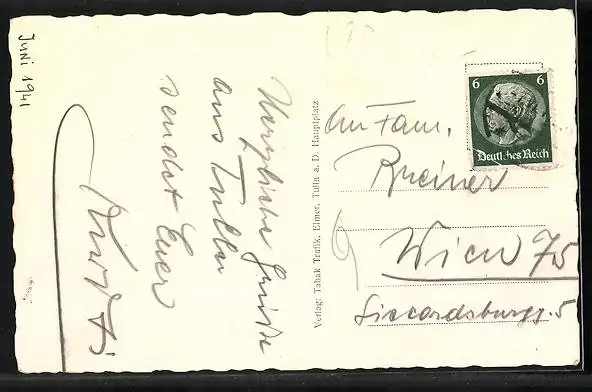 Juni 1941
Herzliche Grüße
aus Tulln
sendet Euer
Verlag: Tabak Trafik, Elmer, Tulln a. D. Hauptplatz
6 6
Deutsches Reich
An Fam.
Rheiner
Wien 75
Siccardsburgg. 5